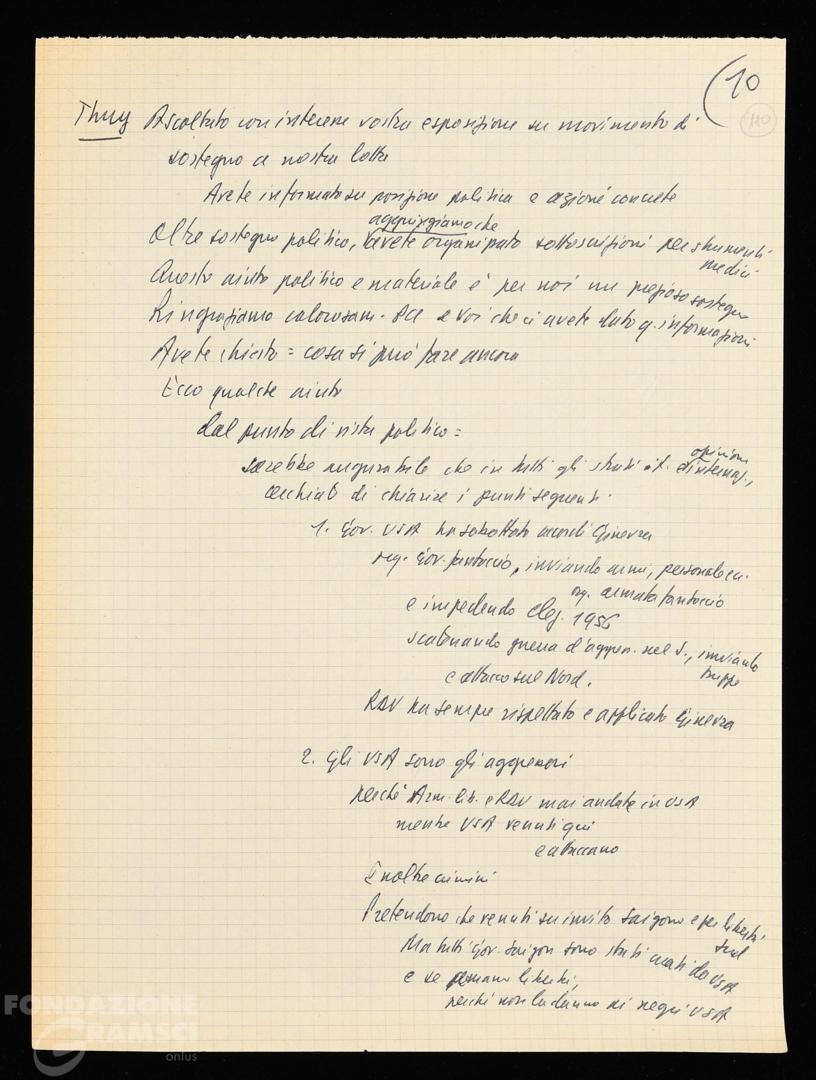 10
110
Thuy Ascoltato con interesse vostra esposizione su movimento di
sostegno a nostra lotta
Avete informato su posizione politica e azioni concrete
aggiungiamo che
Oltre sostegno politico, avete organizzato sottoscrizioni per strumenti
medici
Questo aiuto politico e materiale è per noi un prezioso sostegno
Ringraziamo calorosam. PCI e voi che ci avete dato q. informazioni
Avete chiesto = cosa si può fare ancora
Ecco qualche aiuto
Dal punto di vista politico =
sarebbe augurabile che in tutti gli strati it. opinione
internaz.,
cerchiate di chiarire i punti seguenti.
1. Gov. USA ha sabottato accordi Ginevra
Gov. fantoccio, inviando armi, personale
org. armata fantoccio
e impedendo elez. 1956
scatenando guerra d'aggress. nel S., inviando
truppe
e attacco sul Nord.
RDV ha sempre rispettato e applicato Ginevra
2. Gli USA sono gli aggressori
perché Arm. lib. e RDV mai andate in USA
mentre USA venuti qui
e attaccano
Inoltre crimini
Pretendono che venuti su invito Saigon e per libertà
sud
Ma tutti Gov. Saigon sono stati creati da USA
e se amano libertà,
perché non la danno ai negri USA
FONDAZIONE
GRAMSCI
onlus